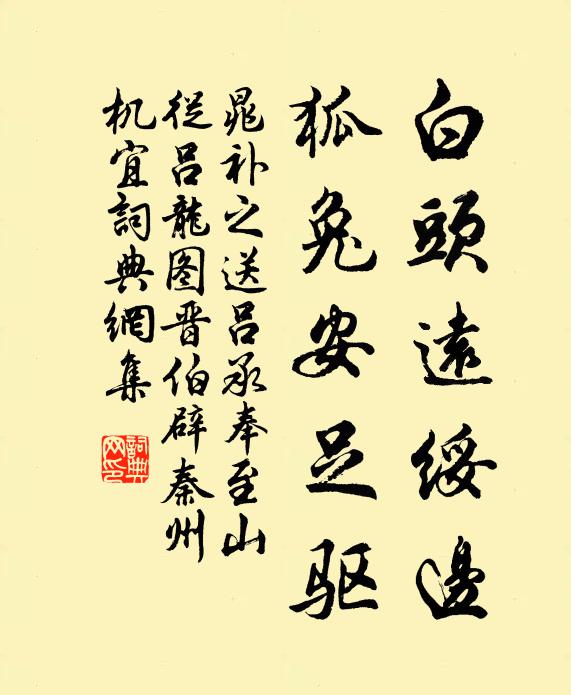 白頭遠綏邊
狐兔安足驱
晁补之送吕承奉至山
從吕龍图晋伯辟秦州
机宜詞典網集
詞典网印